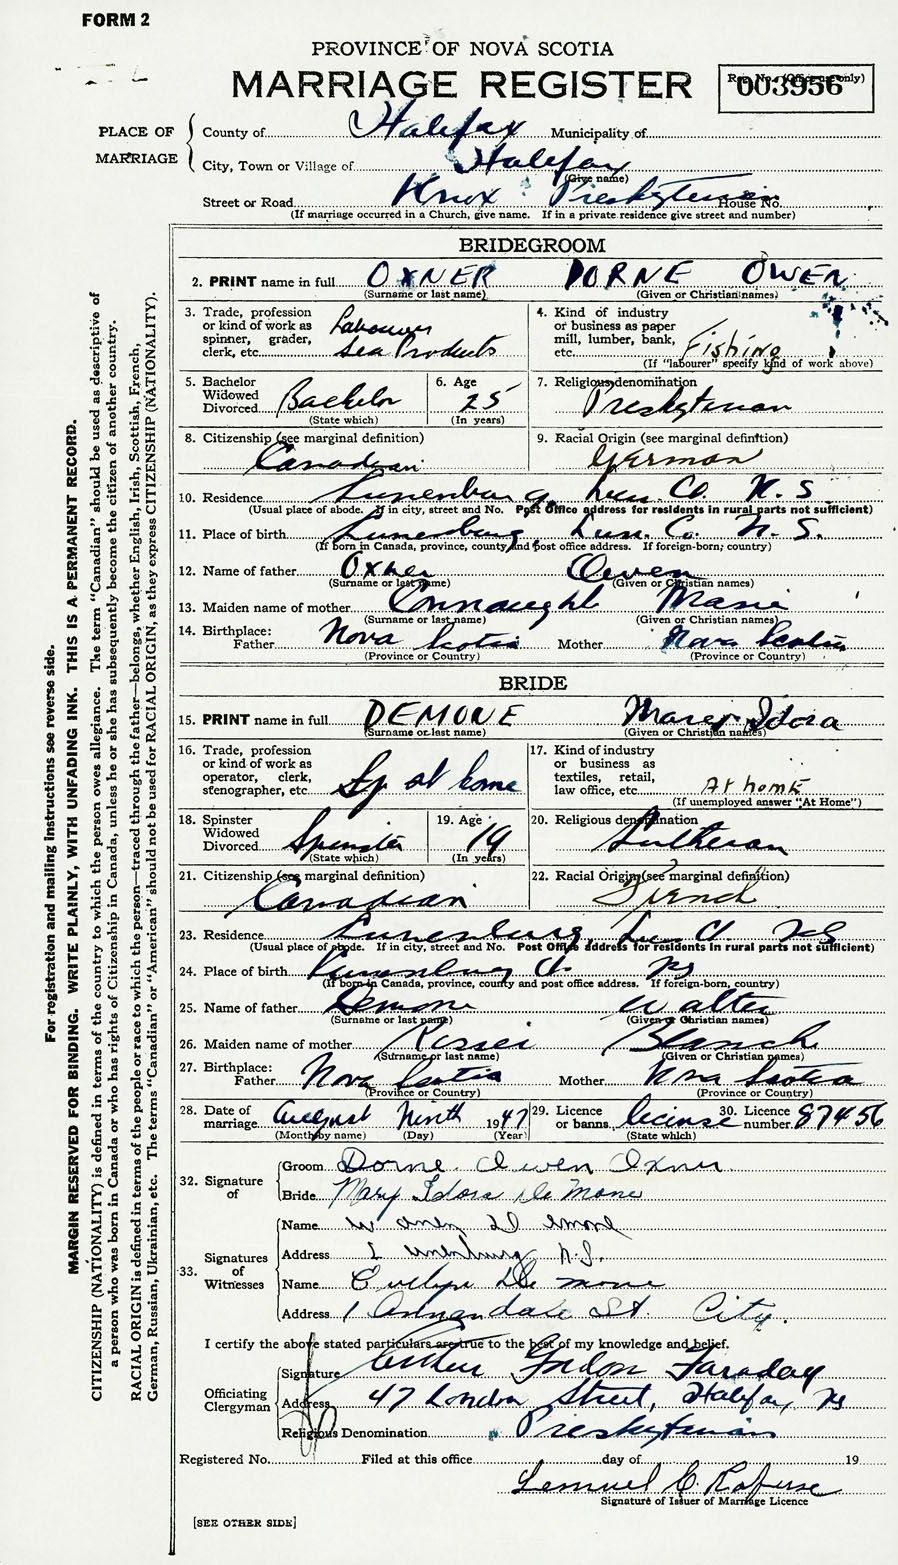 FORM 2
PROVINCE OF NOVA SCOTIA
MARRIAGE REGISTER
Reg. No. (Office use only)
003956
PLACE OF MARRIAGE
County of Halifax Municipality of
City, Town or Village of Halifax
(Give name)
Street or Road Knox Presbyterian House No.
(If marriage occurred in a Church, give name. If in a private residence give street and number)
BRIDEGROOM
2. PRINT name in full OXNER DORNE OWEN
(Surname or last name) (Given or Christian names)
3. Trade, profession or kind of work as spinner, grader, clerk, etc. Labourer Sea Products
4. Kind of industry or business as paper mill, lumber, bank, etc. Fishing
(If "labourer" specify kind of work above)
5. Bachelor Widowed Divorced Bachelor
(State which)
6. Age 25
(In years)
7. Religious denomination Presbyterian
8. Citizenship (see marginal definition) Canadian
9. Racial Origin (see marginal definition) German
10. Residence Lunenburg, Lun. Co. N.S.
(Usual place of abode. If in city, street and No. Post Office address for residents in rural parts not sufficient)
11. Place of birth Lunenburg, Lun. Co. N.S.
(If born in Canada, province, county and post office address. If foreign-born; country)
12. Name of father Oxner Owen
(Surname or last name) (Given or Christian names)
13. Maiden name of mother Marie
(Surname or last name) (Given or Christian names)
14. Birthplace: Father Nova Scotia Mother Nova Scotia
(Province or Country) (Province or Country)
BRIDE
15. PRINT name in full DEMONE Mary Idora
(Surname or last name) (Given or Christian names)
16. Trade, profession or kind of work as operator, clerk, stenographer, etc. at home
17. Kind of industry or business as textiles, retail, law office, etc. At home
(If unemployed answer "At Home")
18. Spinster Widowed Divorced Spinster
(State which)
19. Age 19
(In years)
20. Religious denomination Lutheran
21. Citizenship (see marginal definition) Canadian
22. Racial Origin (see marginal definition) French
23. Residence Lunenburg, Lun. Co NS
(Usual place of abode. If in city, street and No. Post Office address for residents in rural parts not sufficient)
24. Place of birth Lunenburg Co NS
(If born in Canada, province, county and post office address. If foreign-born, country)
25. Name of father Demone Walter
(Surname or last name) (Given or Christian names)
26. Maiden name of mother Blanch
(Surname or last name) (Given or Christian names)
27. Birthplace: Father Nova Scotia Mother Nova Scotia
(Province or Country) (Province or Country)
28. Date of marriage August Ninth 1947
(Month by name) (Day) (Year)
29. Licence or banns license
(State which)
30. Licence number 87456
32. Signature of
Groom Dorne Owen Oxner
Bride Mary Idora DeMone
33. Signatures of Witnesses
Name
Address Lunenburg N.S.
Name Evelyn DeMone
Address 1 Annandale St. City.
I certify the above stated particulars are true to the best of my knowledge and belief.
Officiating Clergyman
Signature Arthur Gordon Faraday
Address 47 London Street, Halifax, NS
Religious Denomination Presbyterian
Registered No. Filed at this office day of 19
Lemuel E. Rafuse
Signature of Issuer of Marriage Licence
[SEE OTHER SIDE]
For registration and mailing instructions see reverse side.
MARGIN RESERVED FOR BINDING. WRITE PLAINLY, WITH UNFADING INK. THIS IS A PERMANENT RECORD.
CITIZENSHIP (NATIONALITY) is defined in terms of the country to which the person owes allegiance. The term "Canadian" should be used as descriptive of
a person who was born in Canada or who has rights of Citizenship in Canada, unless he or she has subsequently become the citizen of another country.
RACIAL ORIGIN is defined in terms of the people or race to which the person—traced through the father—belongs, whether English, Irish, Scottish, French,
German, Russian, Ukrainian, etc. The terms "Canadian" or "American" should not be used for RACIAL ORIGIN, as they express CITIZENSHIP (NATIONALITY).